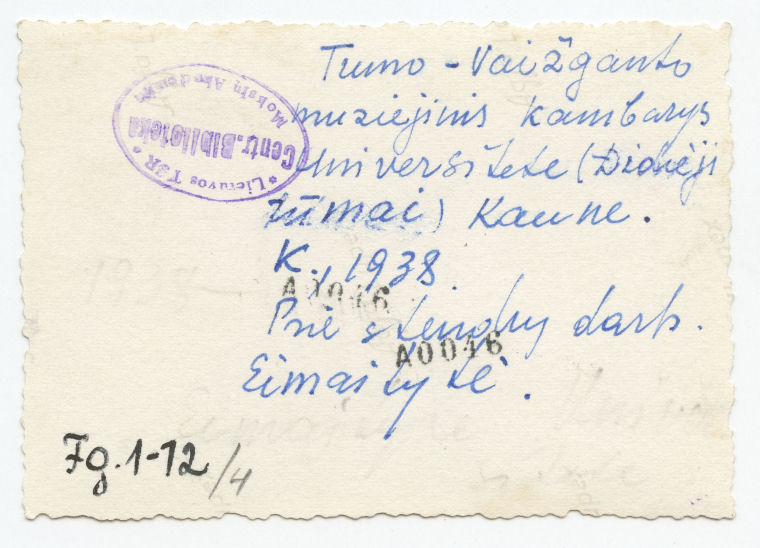 Tumo-Vaižganto
muziejinis kambarys
Universitete (Didieji
rūmai) Kaune.
K., 1938
A0046
Prie stendų darb.
A0046
Eimaitytė.
Fg.1-12/4
* Lietuvos TSR *
Centr. Biblioteka
Mokslų Akademija